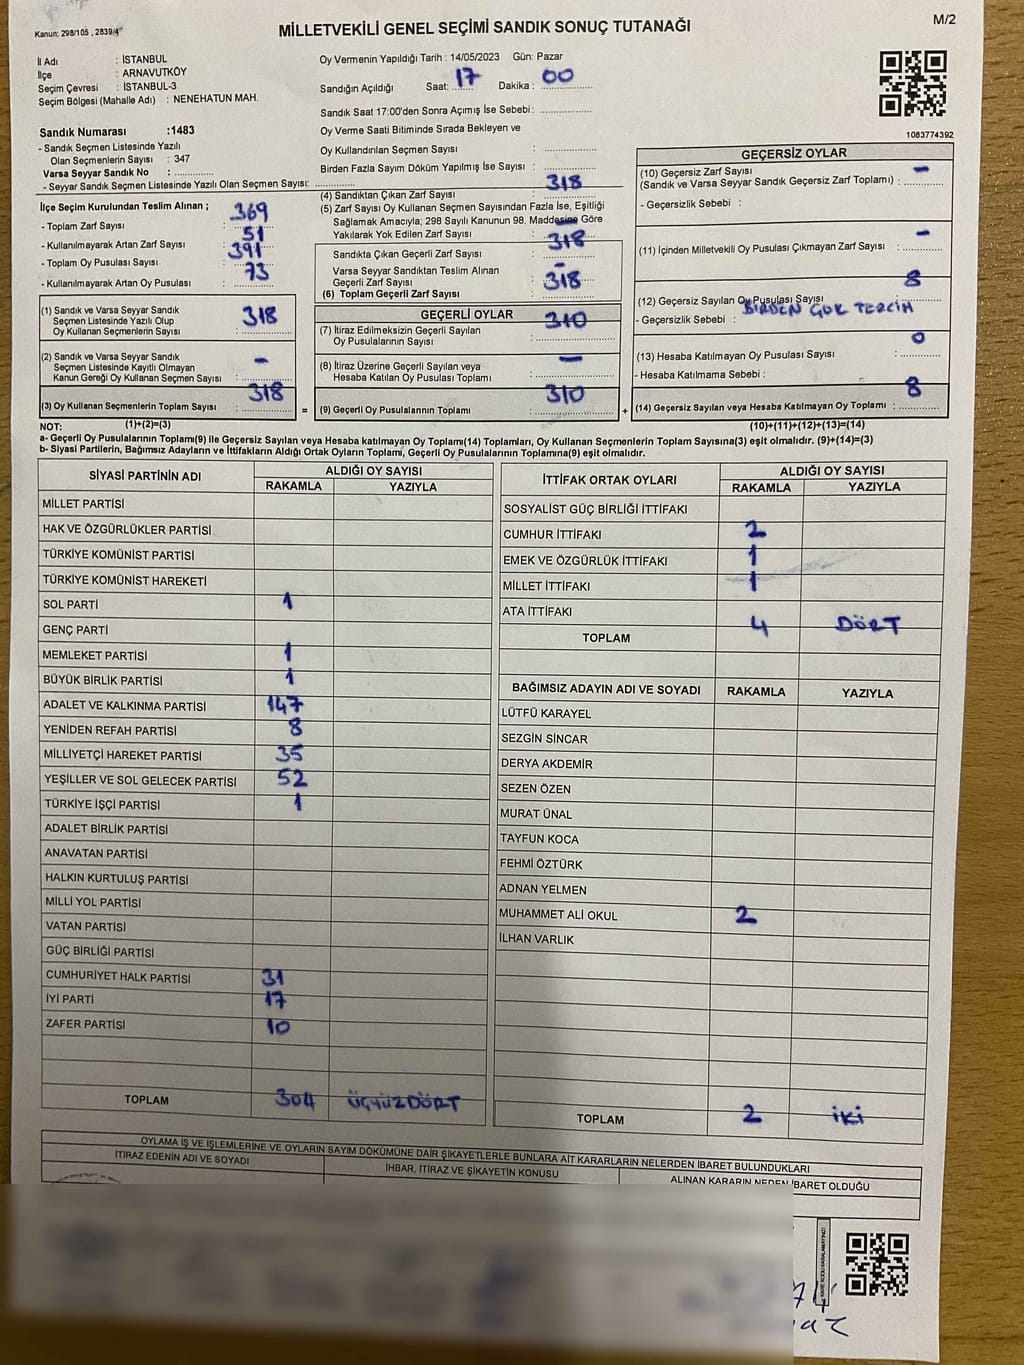 Kanun; 298/105 , 2839/4
MİLLETVEKİLİ GENEL SEÇİMİ SANDIK SONUÇ TUTANAĞI
M/2
İl Adı : İSTANBUL
İlçe : ARNAVUTKÖY
Seçim Çevresi : İSTANBUL-3
Seçim Bölgesi (Mahalle Adı) : NENEHATUN MAH.
Sandık Numarası :1483
- Sandık Seçmen Listesinde Yazılı
Olan Seçmenlerin Sayısı : 347
Varsa Seyyar Sandık No :
- Seyyar Sandık Seçmen Listesinde Yazılı Olan Seçmen Sayısı:
İlçe Seçim Kurulundan Teslim Alınan ;
- Toplam Zarf Sayısı : 369
- Kullanılmayarak Artan Zarf Sayısı : 51
- Toplam Oy Pusulası Sayısı : 391
- Kullanılmayarak Artan Oy Pusulası : 73
(1) Sandık ve Varsa Seyyar Sandık
Seçmen Listesinde Yazılı Olup
Oy Kullanan Seçmenlerin Sayısı : 318
(2) Sandık ve Varsa Seyyar Sandık
Seçmen Listesinde Kayıtlı Olmayan
Kanun Gereği Oy Kullanan Seçmen Sayısı : -
(3) Oy Kullanan Seçmenlerin Toplam Sayısı : 318
Oy Vermenin Yapıldığı Tarih : 14/05/2023 Gün: Pazar
Sandığın Açıldığı Saat: 17 Dakika : 00
Sandık Saat 17:00'den Sonra Açımış İse Sebebi:
Oy Verme Saati Bitiminde Sırada Bekleyen ve
Oy Kullandırılan Seçmen Sayısı :
Birden Fazla Sayım Döküm Yapılmış İse Sayısı :
(4) Sandıktan Çıkan Zarf Sayısı : 318
(5) Zarf Sayısı Oy Kullanan Seçmen Sayısından Fazla İse, Eşitliği
Sağlamak Amacıyla; 298 Sayılı Kanunun 98. Maddesine Göre
Yakılarak Yok Edilen Zarf Sayısı : -
Sandıkta Çıkan Geçerli Zarf Sayısı : 318
Varsa Seyyar Sandıktan Teslim Alınan
Geçerli Zarf Sayısı : -
(6) Toplam Geçerli Zarf Sayısı : 318
GEÇERLİ OYLAR
(7) İtiraz Edilmeksizin Geçerli Sayılan
Oy Pusulalarının Sayısı : 310
(8) İtiraz Üzerine Geçerli Sayılan veya
Hesaba Katılan Oy Pusulası Toplamı : -
= (9) Geçerli Oy Pusulalarının Toplamı : 310
1083774392
GEÇERSİZ OYLAR
(10) Geçersiz Zarf Sayısı
(Sandık ve Varsa Seyyar Sandık Geçersiz Zarf Toplamı) : -
- Geçersizlik Sebebi :
(11) İçinden Milletvekili Oy Pusulası Çıkmayan Zarf Sayısı : -
(12) Geçersiz Sayılan Oy Pusulası Sayısı : 8
- Geçersizlik Sebebi : BİRDEN ÇOK TERCİH
(13) Hesaba Katılmayan Oy Pusulası Sayısı : 0
- Hesaba Katılmama Sebebi :
+ (14) Geçersiz Sayılan veya Hesaba Katılmayan Oy Toplamı : 8
NOT: (1)+(2)=(3)
(10)+(11)+(12)+(13)=(14)
a- Geçerli Oy Pusulalarının Toplamı(9) ile Geçersiz Sayılan veya Hesaba katılmayan Oy Toplamı(14) Toplamları, Oy Kullanan Seçmenlerin Toplam Sayısına(3) eşit olmalıdır. (9)+(14)=(3)
b- Siyasi Partilerin, Bağımsız Adayların ve İttifakların Aldığı Ortak Oyların Toplamı, Geçerli Oy Pusulalarının Toplamına(9) eşit olmalıdır.
SİYASİ PARTİNİN ADI
ALDIĞI OY SAYISI
RAKAMLA YAZIYLA
MİLLET PARTİSİ
HAK VE ÖZGÜRLÜKLER PARTİSİ
TÜRKİYE KOMÜNİST PARTİSİ
TÜRKİYE KOMÜNİST HAREKETİ
SOL PARTİ 1
GENÇ PARTİ
MEMLEKET PARTİSİ 1
BÜYÜK BİRLİK PARTİSİ 1
ADALET VE KALKINMA PARTİSİ 147
YENİDEN REFAH PARTİSİ 8
MİLLİYETÇİ HAREKET PARTİSİ 35
YEŞİLLER VE SOL GELECEK PARTİSİ 52
TÜRKİYE İŞÇİ PARTİSİ 1
ADALET BİRLİK PARTİSİ
ANAVATAN PARTİSİ
HALKIN KURTULUŞ PARTİSİ
MİLLİ YOL PARTİSİ
VATAN PARTİSİ
GÜÇ BİRLİĞİ PARTİSİ
CUMHURİYET HALK PARTİSİ 31
İYİ PARTİ 17
ZAFER PARTİSİ 10
TOPLAM 304 ÜÇYÜZDÖRT
İTTİFAK ORTAK OYLARI
ALDIĞI OY SAYISI
RAKAMLA YAZIYLA
SOSYALİST GÜÇ BİRLİĞİ İTTİFAKI
CUMHUR İTTİFAKI 2
EMEK VE ÖZGÜRLÜK İTTİFAKI 1
MİLLET İTTİFAKI 1
ATA İTTİFAKI
TOPLAM 4 DÖRT
BAĞIMSIZ ADAYIN ADI VE SOYADI RAKAMLA YAZIYLA
LÜTFÜ KARAYEL
SEZGİN SİNCAR
DERYA AKDEMİR
SEZEN ÖZEN
MURAT ÜNAL
TAYFUN KOCA
FEHMİ ÖZTÜRK
ADNAN YELMEN
MUHAMMET ALİ OKUL 2
İLHAN VARLIK
TOPLAM 2 İKİ
OYLAMA İŞ VE İŞLEMLERİNE VE OYLARIN SAYIM DÖKÜMÜNE DAİR ŞİKAYETLERLE BUNLARA AİT KARARLARIN NELERDEN İBARET BULUNDUKLARI
İTİRAZ EDENİN ADI VE SOYADI
İHBAR, İTİRAZ VE ŞİKAYETİN KONUSU
ALINAN KARARIN NEDEN İBARET OLDUĞU